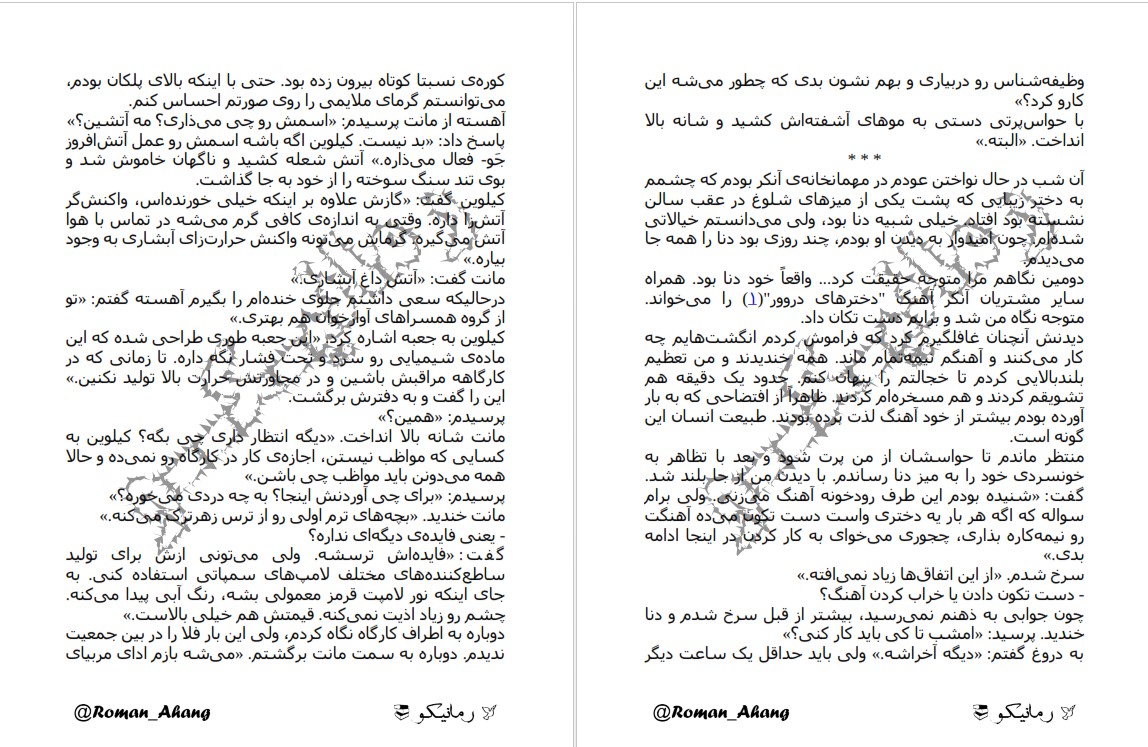 کوره‌ی نسبتا کوتاه بیرون زده بود. حتی با اینکه بالای پلکان بودم،
می‌توانستم گرمای ملایمی را روی صورتم احساس کنم.
آهسته از مانت پرسیدم: «اسمش رو چی می‌ذاری؟ مه آتشین؟»
پاسخ داد: «بد نیست. کیلوین اگه باشه اسمش رو عمل آتش‌افروز
جَو- فعال می‌ذاره.» آتش شعله کشید و ناگهان خاموش شد و
بوی تند سنگ سوخته را از خود به جا گذاشت.
کیلوین گفت: «گازش علاوه بر اینکه خیلی خورنده‌اس، واکنش‌گر
آتش‌زا داره. وقتی به اندازه‌ی کافی گرم می‌شه در تماس با هوا
آتش می‌گیره. گرماش می‌تونه واکنش حرارت‌زای آبشاری به وجود
بیاره.»
مانت گفت: «آتش داغ آبشاری.»
درحالیکه سعی داشتم جلوی خنده‌ام را بگیرم آهسته گفتم: «تو
از گروه همسراهای آوازخوان هم بهتری.»
کیلوین به جعبه اشاره کرد. «این جعبه طوری طراحی شده که این
ماده‌ی شیمیایی رو سرد و تحت فشار نگه داره. تا زمانی که در
کارگاهه مراقبش باشین و در مجاورتش حرارت بالا تولید نکنین.»
این را گفت و به دفترش برگشت.
پرسیدم: «همین؟»
مانت شانه بالا انداخت. «دیگه انتظار داری چی بگه؟ کیلوین به
کسایی که مواظب نیستن، اجازه‌ی کار در کارگاه رو نمی‌ده و حالا
همه می‌دونن باید مواظب چی باشن.»
پرسیدم: «برای چی آوردنش اینجا؟ به چه دردی می‌خوره؟»
مانت خندید. «بچه‌های ترم اولی رو از ترس زهرترک می‌کنه.»
- یعنی فایده‌ی دیگه‌ای نداره؟
گفت: «فایده‌اش ترسشه. ولی می‌تونی ازش برای تولید
ساطع‌کننده‌های مختلف لامپ‌های سمپاتی استفاده کنی. به
جای اینکه نور لامپت قرمز معمولی بشه، رنگ آبی پیدا می‌کنه.
چشم رو زیاد اذیت نمی‌کنه. قیمتش هم خیلی بالاست.»
دوباره به اطراف کارگاه نگاه کردم، ولی این بار فلا را در بین جمعیت
ندیدم. دوباره به سمت مانت برگشتم. «می‌شه بازم ادای مربیای
@Roman_Ahang
رمانیکو
وظیفه‌شناس رو دربیاری و بهم نشون بدی که چطور می‌شه این
کارو کرد؟»
با حواس‌پرتی دستی به موهای آشفته‌اش کشید و شانه بالا
انداخت. «البته.»
* * *
آن شب در حال نواختن عودم در مهمانخانه‌ی آنکر بودم که چشمم
به دختر زیبایی که پشت یکی از میزهای شلوغ در عقب سالن
نشسته بود افتاد. خیلی شبیه دنا بود، ولی می‌دانستم خیالاتی
شده‌ام. چون امیدوار به دیدن او بودم، چند روزی بود دنا را همه جا
می‌دیدم.
دومین نگاهم مرا متوجه حقیقت کرد... واقعاً خود دنا بود. همراه
سایر مشتریان آنکر آهنگ "دخترهای دروور"(۱) را می‌خواند.
متوجه نگاه من شد و برایم دست تکان داد.
دیدنش آنچنان غافلگیرم کرد که فراموش کردم انگشت‌هایم چه
کار می‌کنند و آهنگم نیمه‌تمام ماند. همه خندیدند و من تعظیم
بلندبالایی کردم تا خجالتم را پنهان کنم. حدود یک دقیقه هم
تشویقم کردند و هم مسخره‌ام کردند. ظاهرا از افتضاحی که به بار
آورده بودم بیشتر از خود آهنگ لذت برده بودند. طبیعت انسان این
گونه است.
منتظر ماندم تا حواسشان از من پرت شود و بعد با تظاهر به
خونسردی خود را به میز دنا رساندم. با دیدن من از جا بلند شد.
گفت: «شنیده بودم این طرف رودخونه آهنگ می‌زنی. ولی برام
سواله که اگه هر بار یه دختری واست دست تکون می‌ده آهنگت
رو نیمه‌کاره بذاری، چجوری می‌خوای به کار کردن در اینجا ادامه
بدی.»
سرخ شدم. «از این اتفاق‌ها زیاد نمی‌افته.»
- دست تکون دادن یا خراب کردن آهنگ؟
چون جوابی به ذهنم نمی‌رسید، بیشتر از قبل سرخ شدم و دنا
خندید. پرسید: «امشب تا کی باید کار کنی؟»
به دروغ گفتم: «دیگه آخراشه.» ولی باید حداقل یک ساعت دیگر
@Roman_Ahang
رمانیکو